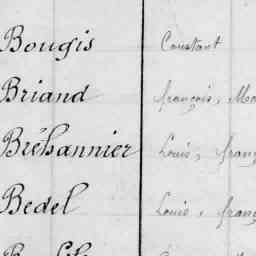 Bougis Constant
Briand françois, Ma
Bréhannier Louis, franç
Bedel Louis, franç